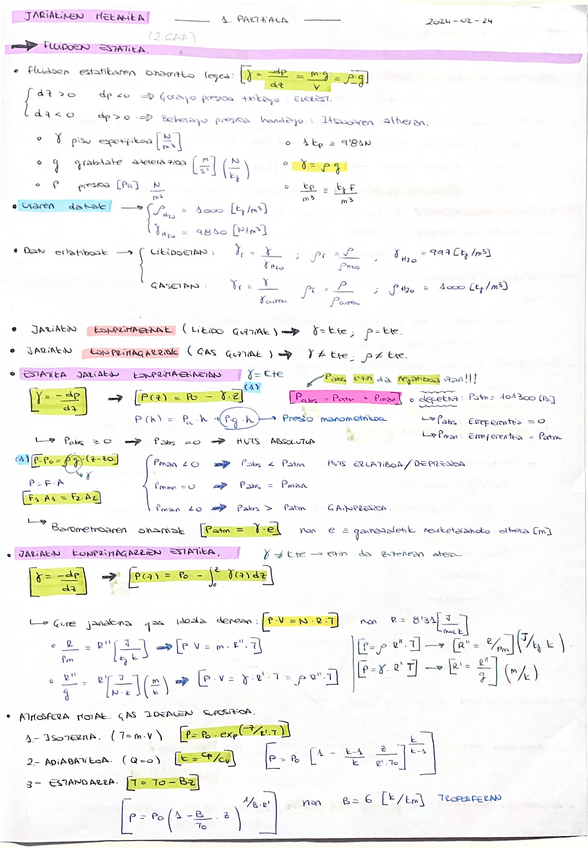 JARIAKINEN MEKANIKA — 1. PARTZIALA — 2024-02-24
(2. GAIA)
→ FLUIDOEN ESTATIKA.
• Fluidoen estatikaren oinarrizko legea: [γ = -dp/dz = m·g/V = ρ·g]
dz > 0 dp < 0 ⇒ Gorago presioa txikiago: EVEREST.
dz < 0 dp > 0 ⇒ Beherago presioa handiago: Itsasoaren atheran.
◦ γ pisu espezifikoa [N/m³] ◦ 1 kp = 9'81N
◦ g grabitate azelerazioa [m/s²] (N/kg) ◦ γ = ρg
◦ P presioa [Pa] N/m² ◦ kp/m³ = kgf/m³
• Uraren datuak → ρH2O = 1000 [kg/m³]
γH2O = 9810 [N/m³]
• Dan erlatiboak → LIKIDOETAN: γr = γ/γH2O ; ρr = ρ/ρH2O , γH2O = 997 [kg/m³]
GASETAN: γr = γ/γairea ; ρr = ρ/ρairea ; ρH2O = 1000 [kg/m³]
• JARIAKIN KONPRIMAEZINAK (LIKIDO GUZTIAK) → γ = kte; ρ = kte.
• JARIAKIN KONPRIMAGARRIAK (GAS GUZTIAK) → γ ≠ kte; ρ ≠ kte.
• ESTATIKA JARIAKIN KONPRIMAEZINETAN γ = kte Pabs ezin da negatiboa izan!!!
[γ = -dp/dz] → [P(z) = P0 - γ·z] (1) [Pabs = Patm + Pman] ◦ defektuz: Patm = 101300 [Pa]
P(h) = Pa·h + ρg·h → Presio manometrikoa ↳ Pabs: Erreferentzia = 0
↳ Pabs ≥ 0 → Pabs = 0 → HUTS ABSOLUTUA ↳ Pman: Erreferentzia = Patm
(1) [P-P0 = ρg(z-z0)] Pman < 0 → Pabs < Patm HUTS ERLATIBOA/DEPRESIOA
γ
P = F·A Pman = 0 → Pabs = Pman
[F1·A1 = F2·A2] Pman < 0 → Pabs > Patm GAINPRESIOA.
↳ Barometroaren oinarriak [Patm = γ·e] non e = gainazaletik neurketarainoko altuera [m]
• JARIAKIN KONPRIMAGARRIEN ESTATIKA. γ ≠ kte → ezin da zeinean atera.
[γ = -dp/dz] → [P(z) = P0 - ∫₀ᶻ γ(z)dz]
↳ Gure jariakina gas ideala denean: [P·V = N·R·T] non R = 8'31 [J/mol·K]
◦ R/Pm = R'' [J/kg·K] → [P·V = m·R''·T] [P = ρ·R''·T] → [R'' = R/Pm] (J/kg·K)
◦ R''/g = R' [J/N·K] (m/K) → [P·V = γ·R'·T = ρ·R''·T] [P = γ·R'·T] → [R' = R''/g] (m/K)
• ATMOSFERA MOTAK. GAS IDEALEN SUPOSIZIOA.
1.- ISOTERMA. (T = m.v) [P = P0·exp(-z/R'·T)]
2.- ADIABATIKOA. (Q=0) [k = Cp/Cv] [P = P0 [1 - k-1/k · z/R'·T0]^(k/k-1)]
3.- ESTANDARRA. [T = T0 - Bz]
[P = P0 (1 - B/T0 · z)^(1/B·R')] non B = 6 [K/km] TROPOSFERAN